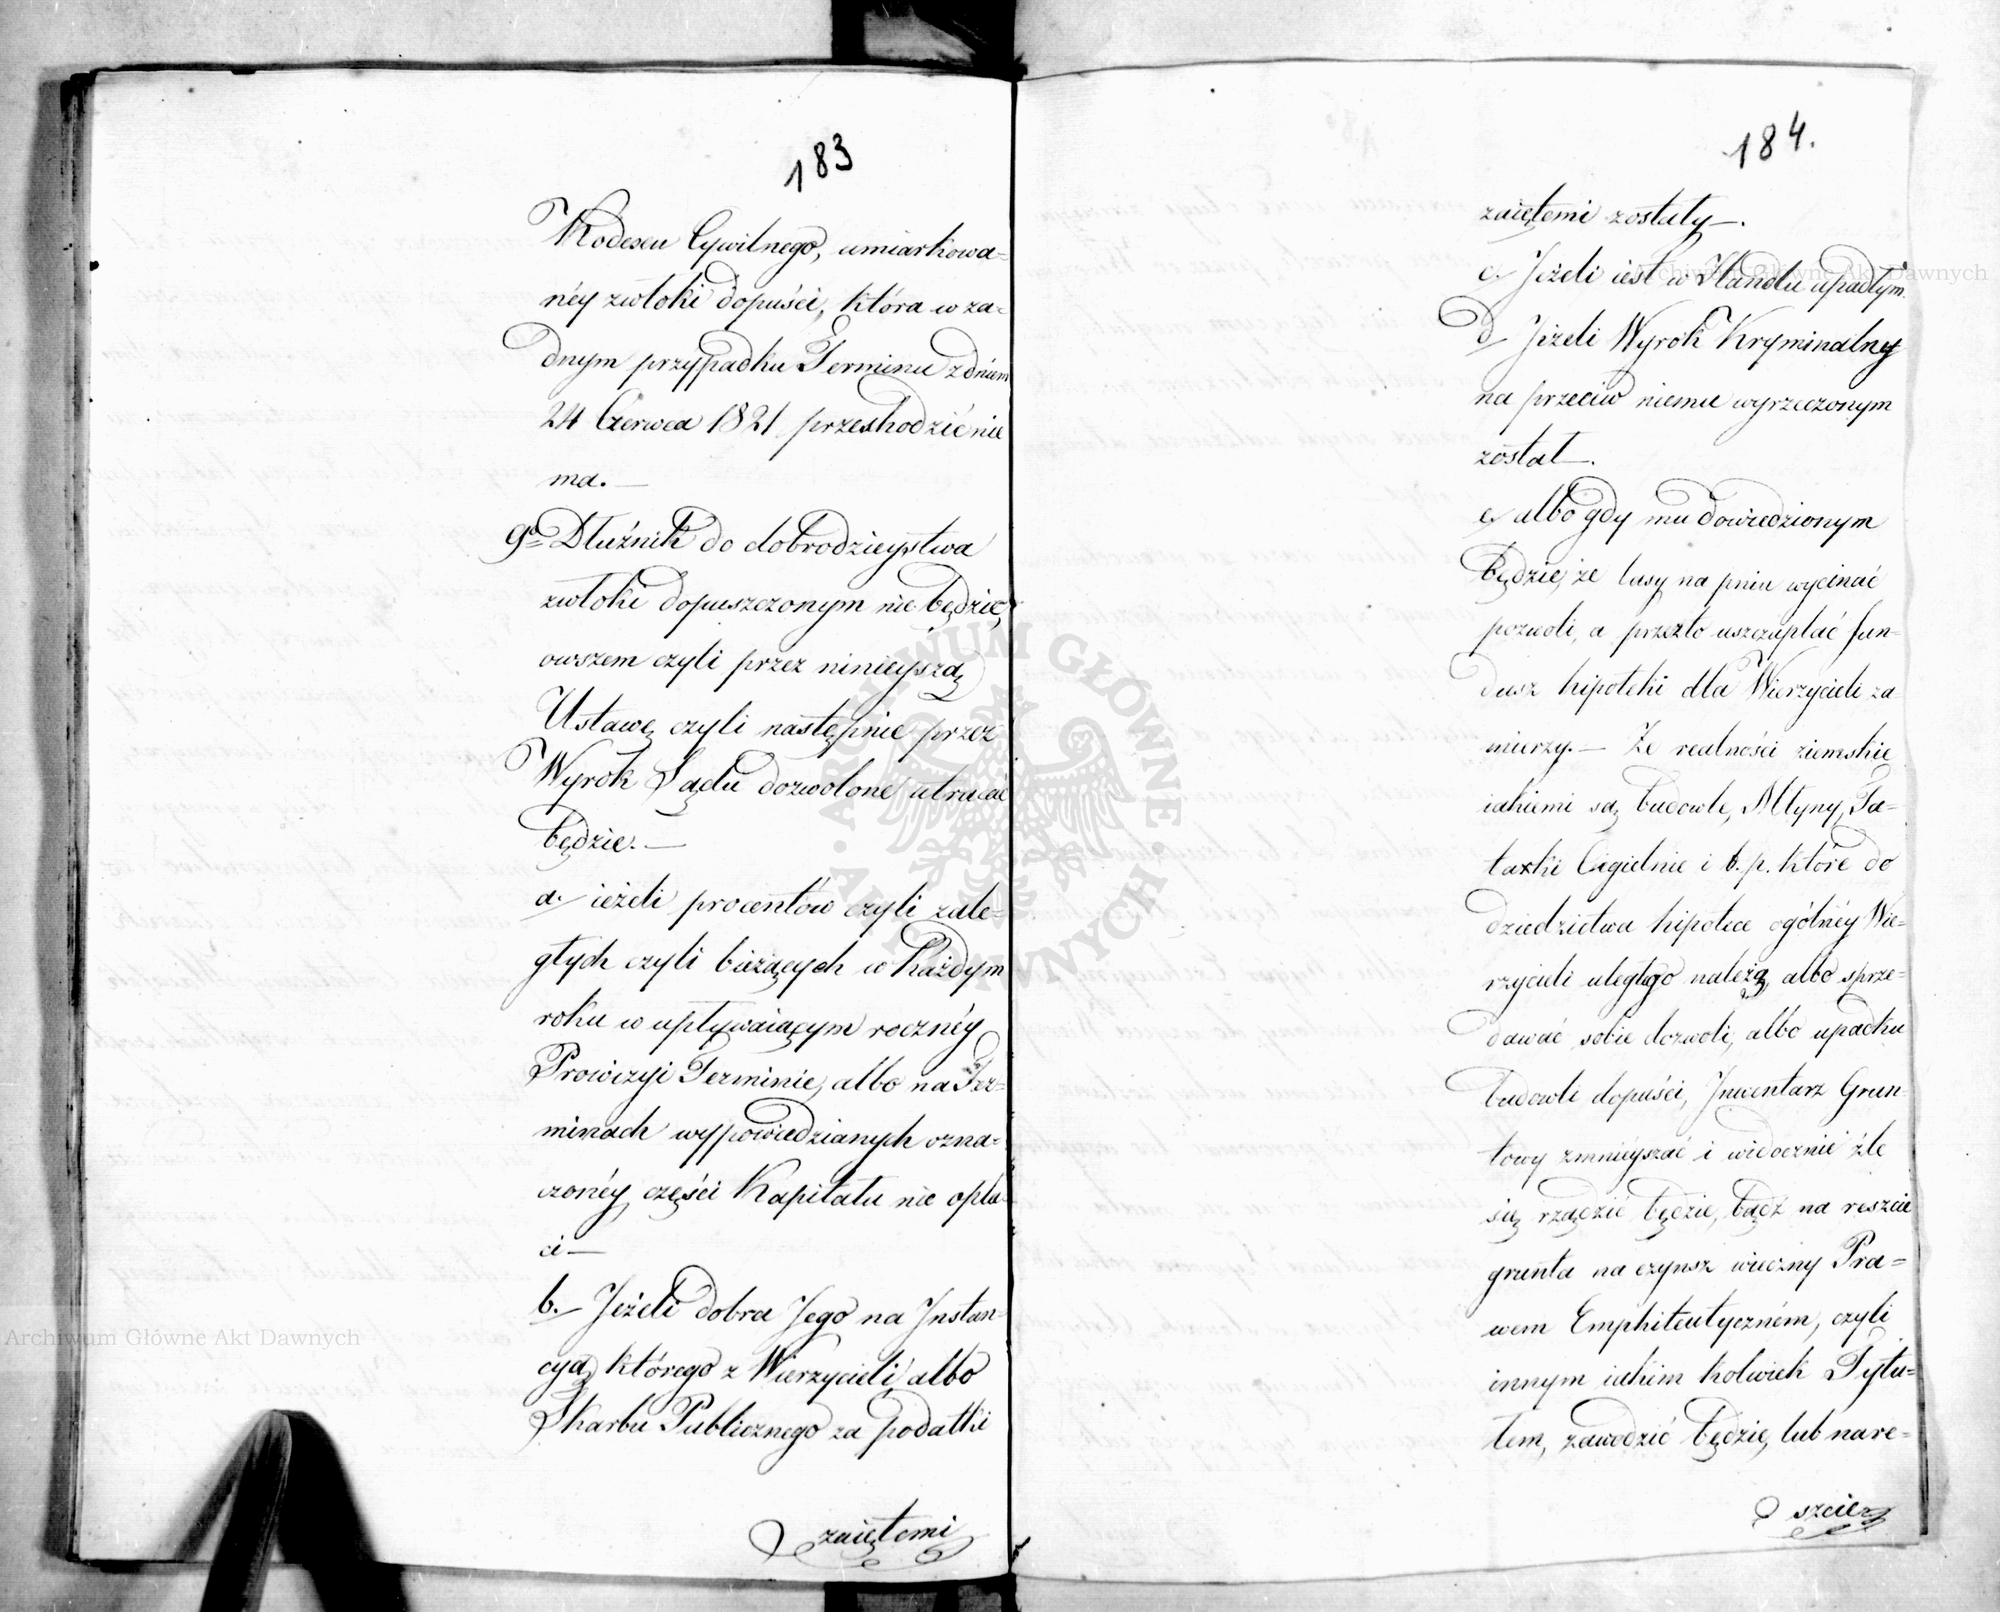 183
Kodexu Cywilnego, umiarkowa=
néy zwłoki dopuści, która w ża=
dnym przypadku Terminu z dniem
24 Czerwca 1821 przechodzić nie
ma. —
9o Dłużnik do dobrodzieystwa
zwłoki dopuszczonym nie będzie,
owszem czyli przez ninieyszą
Ustawę czyli następnie przez
Wyrok Sądu dozwolone utracać
będzie. —
a. ieżeli procentów czyli zale=
głych czyli bieżących w każdym
roku w upływaiącym rocznéy
Prowizyi Terminie, albo na Ter=
minach wypowiedzianych ozna=
czonéy części Kapitału nie opła-
ci —
b. Jeżeli dobra Jego na Instan-
cyą którego z Wierzycieli albo
Skarbu Publicznego za podatki
zaiętemi
184.
zaiętemi zostały —.
c. Jeżeli iest w Handlu upadłym.
d Jeżeli Wyrok Kryminalny
na przeciw niemu wyrzeczonym
został —.
e. albo gdy mu dowiedzionym
będzie, że lasy na pniu wycinać
pozwoli, a przezto uszczuplać fun-
dusz hipoteki dla Wierzycieli za
mierzy. — Że realności ziemskie
iakiemi są budowle, Młyny, Ta-
rtaki Cegielnie i t. p. które do
dziedzictwa hipotece ogólnéy Wie-
rzycieli uległego należą, albo sprze=
dawać sobie dozwoli, albo upadku
budowli dopuści, Inwentarz Grun-
towy zmnieyszać i widocznie źle
się rządzić będzie, bądź na reszcie
grunta na czynsz wieczny Pra=
wem Emphiteutyczném, czyli
innym iakim kolwiek Tytu=
łem, zawodzić będzie, lub nare=
szcie
Archiwum Główne Akt Dawnych
Archiwum Główne Akt Dawnych
ARCHIWUM GŁÓWNE · AKT DAWNYCH ·